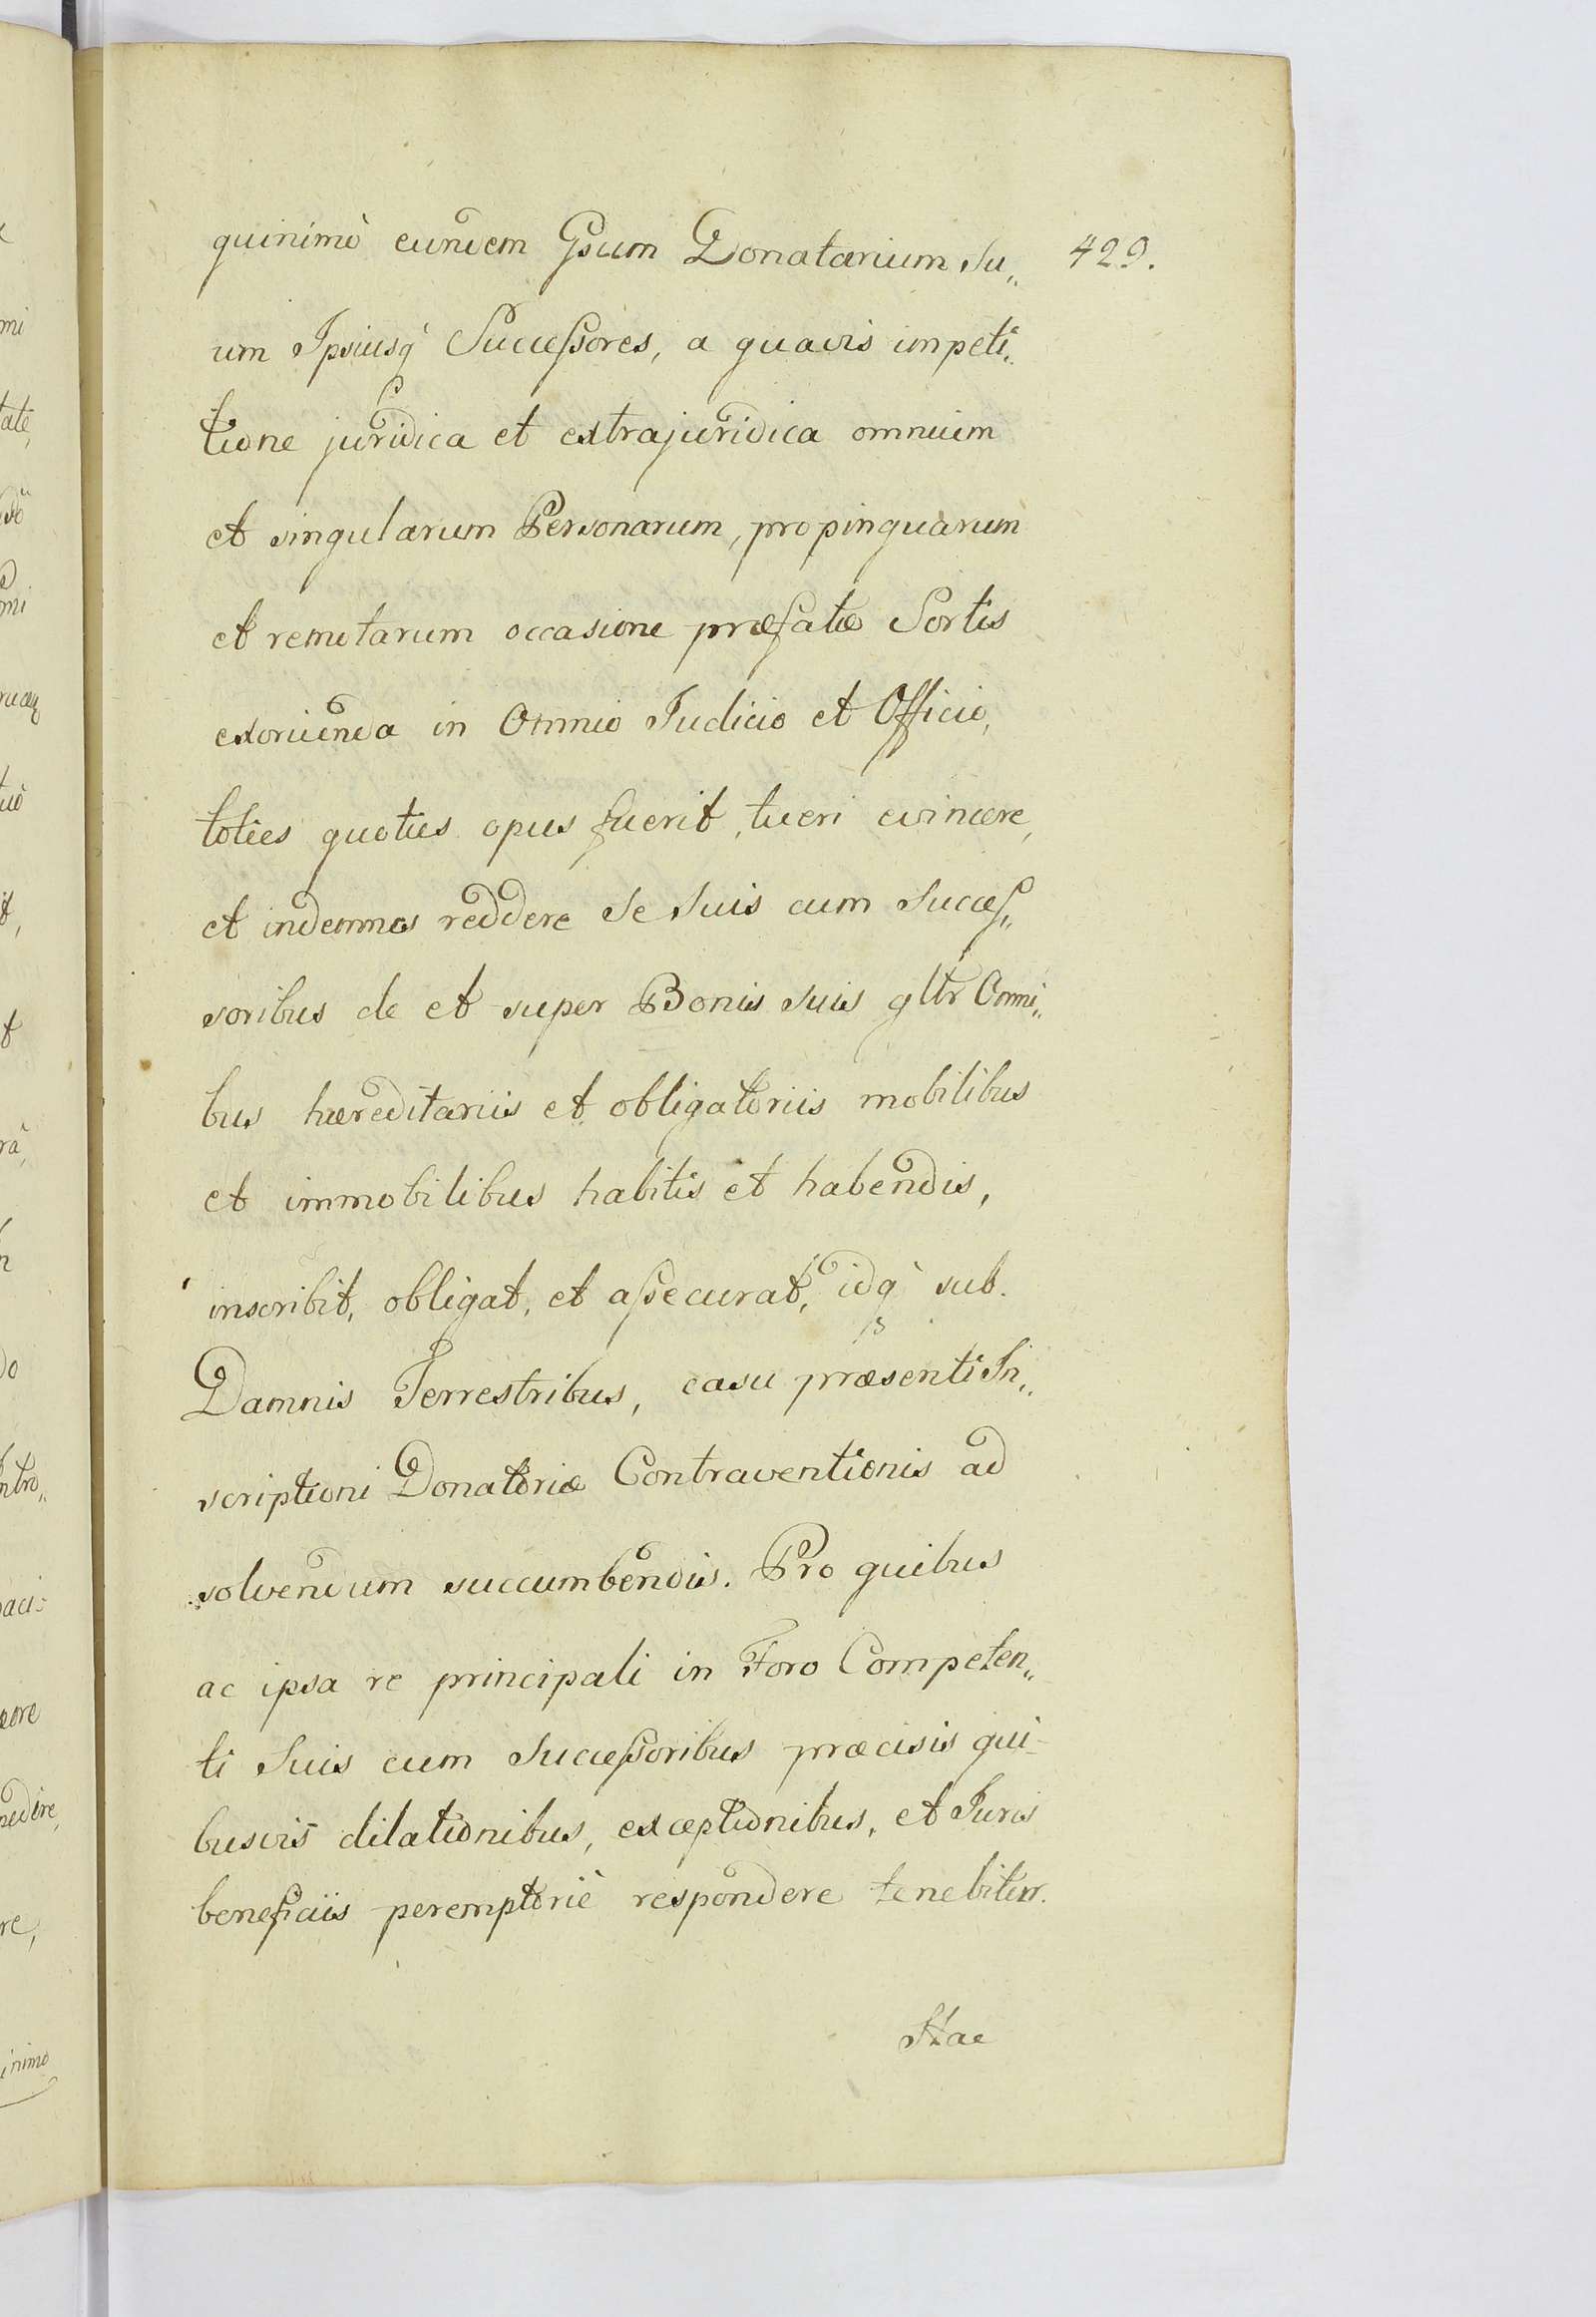 quinimò eundem Gsum Donatarium Su„ 429.
um Ipsiusq́ Succeſsores, a quavis impeti„
tione juridica et extrajuridica omnium
et singularum Personarum, propinquarum
et remotarum occasione præfatæ Sortis
exorienda in Omnio Judicio et Officio,
toties quoties opus fuerit, tueri evincere,
et indemnes reddere Se Suis cum Succeſ„
soribus de et super Bonis Suis gltr Omni„
bus hæreditariis et obligatoriis mobilibus
et immobilibus habitis et habendis,
inscribit, obligat, et aſsecurat, idq́ sub.
Damnis Terrestribus, casu præsenti In„
scriptioni Donatoriæ Contraventionis ad
solvendum succumbendis. Pro quibus
ac ipsa re principali in Foro Competen„
ti Suis cum Succeſsoribus præcisis qui-
busvis dilationibus, exceptionibus, et Juris
beneficiis peremptoriè respondere tenebitur.
Hac